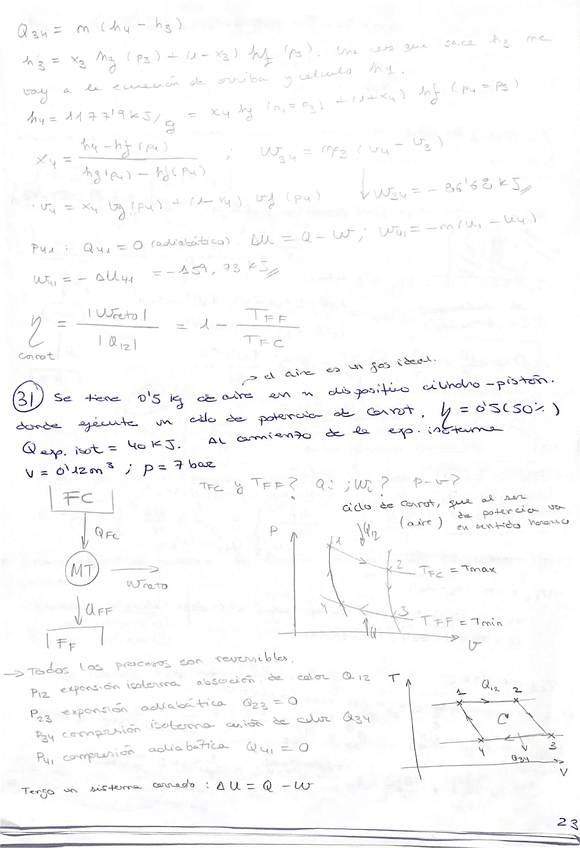 Q34 = m (h4 - h3)
h3 = x3 hg (p3) + (1 - x3) hf (p3). Una vez que sace h3 me
voy a la ecuación de arriba y calculo h4.
h4 = 1177'9 kJ/g = x4 hg (p4 = p3) + (1 + x4) hf (p4 = p3)
x4 = h4 - hf (p4) / hg (p4) - hf (p4) ; W34 = mp3 (v4 - v3)
· v4 = x4 vg (p4) + (1 - x4) vf (p4) ↓ W34 = - 86'62 kJ
P41 : Q41 = 0 (adiabático) ΔU = Q - W ; W41 = -m (u1 - u4)
W41 = - ΔU41 = -159,73 kJ
η carnot = |Wneto| / |Q12| = 1 - TFF / TFC
→ el aire es un gas ideal.
31) Se tiene 0'5 kg de aire en n dispositivo cilindro-pistón.
donde ejecute un ciclo de potencia de Carnot, η = 0'5 (50%)
Q exp. isot = 40 kJ. Al comienzo de la exp. isoterma
V = 0'12 m³ ; p = 7 bar
TFC y TFF? Qi ; Wi? p-v?
ciclo de Carnot, que al ser
(aire) de potencia va
en sentido horario
FC
QFC
MT
Wneto
QFF
FF
P
1
Q12
2
TFC = Tmax
4
3
TFF = Tmin
Q
v
→ Todos los procesos son reversibles.
P12 expansión isoterma absorción de calor Q12
P23 expansión adiabática Q23 = 0
P34 compresión isoterma cesión de calor Q34
P41 compresión adiabática Q41 = 0
T
1
Q12
2
4
3
Q34
V
Tengo un sistema cerrado : ΔU = Q - W
23